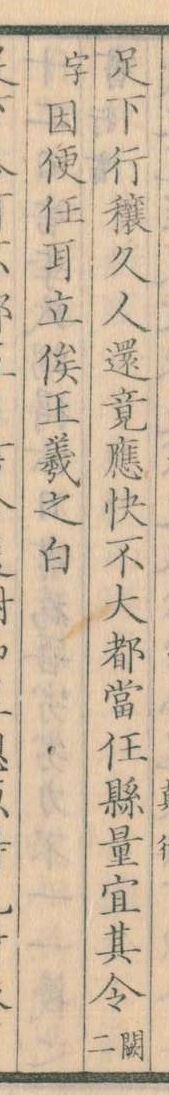 足下行穰久人還竟應快不大都當任縣量宜其令二闕
字因便任耳立俟王羲之白